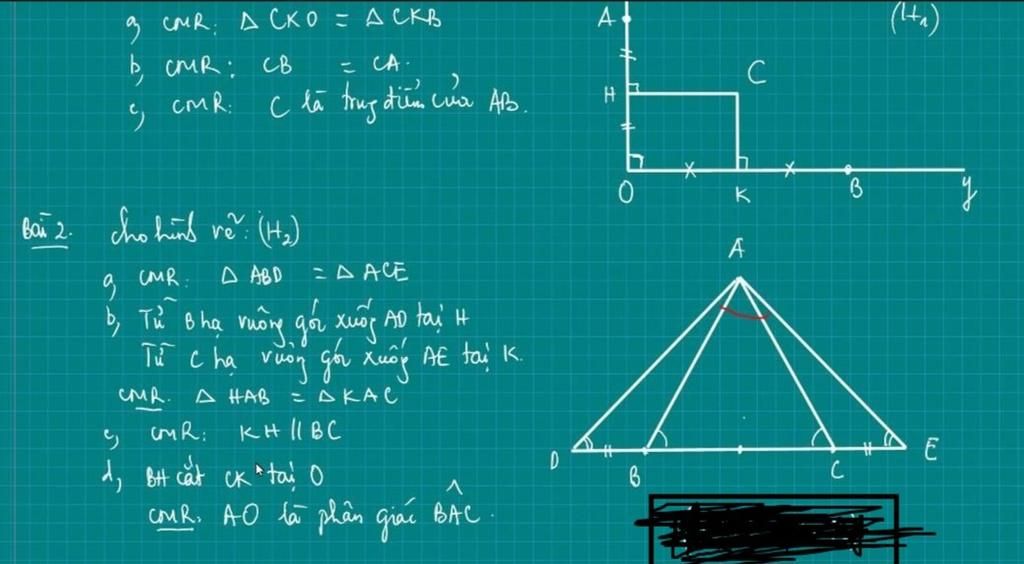 a, CMR: Δ CKO = Δ CKB
b, CMR: CB = CA.
c, CMR: C là trung điểm của AB.
A
(H₁)
C
H
O
K
B
y
Bài 2. Cho hình vẽ: (H₂)
a, CMR: Δ ABD = Δ ACE
b, Từ B hạ vuông góc xuống AD tại H
Từ C hạ vuông góc xuống AE tại K.
CMR: Δ HAB = Δ KAC
c, CMR: KH // BC
d, BH cắt CK tại O
CMR: AO là phân giác BÂC.
A
D
B
C
E